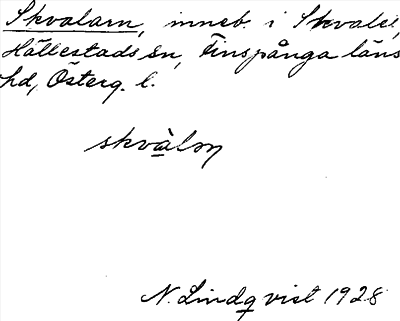 Skvalarn, inneb. i Skvalet,
Hällestads sn, Finspånga läns
hd, Österg. l.
skvàlan
N. Lindqvist 1928